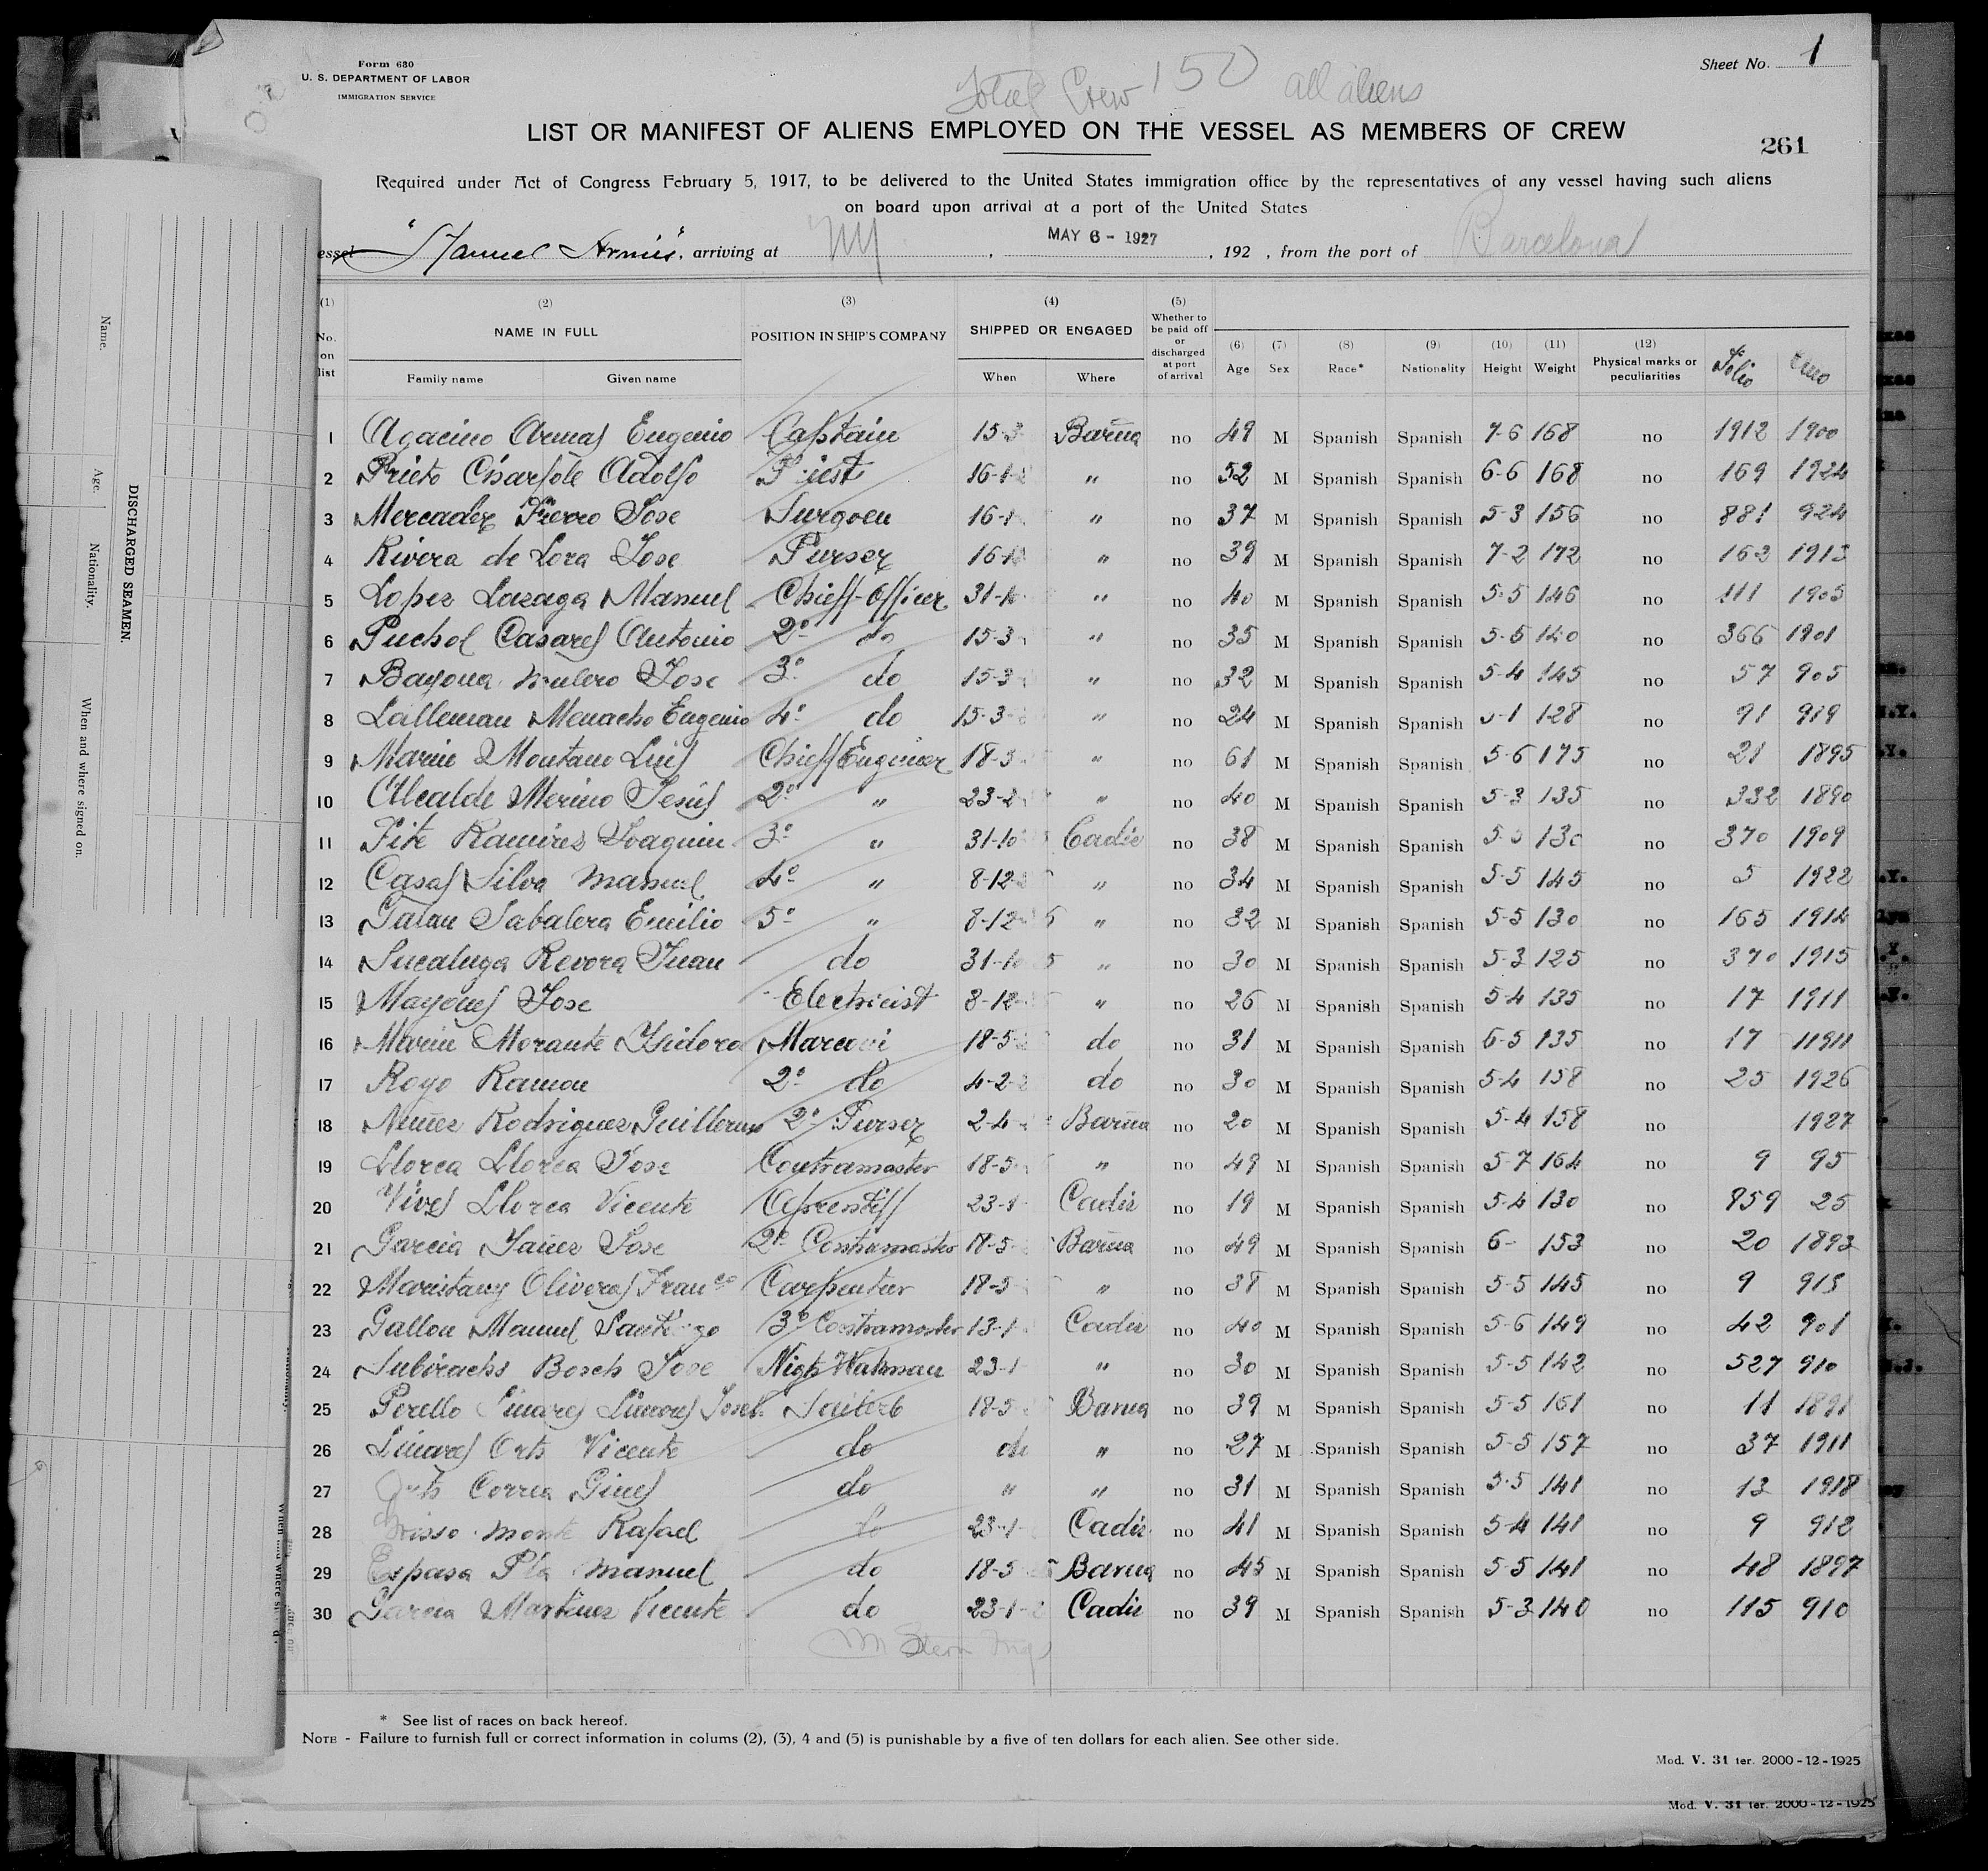 Form 680
U. S. DEPARTMENT OF LABOR
IMMIGRATION SERVICE
Sheet No. 1
Total Crew 150 all aliens
LIST OR MANIFEST OF ALIENS EMPLOYED ON THE VESSEL AS MEMBERS OF CREW
261
Required under Act of Congress February 5, 1917, to be delivered to the United States immigration office by the representatives of any vessel having such aliens
on board upon arrival at a port of the United States
essel "Manuel Arnus", arriving at NY, MAY 6 - 1927, 192 , from the port of Barcelona
(1) No. on list (2) NAME IN FULL Family name Given name (3) POSITION IN SHIP'S COMPANY (4) SHIPPED OR ENGAGED When Where (5) Whether to be paid off or discharged at port of arrival (6) Age (7) Sex (8) Race* (9) Nationality (10) Height (11) Weight (12) Physical marks or peculiarities Folio
1 Agacino Armas Eugenio Captain 15-3 Barna no 49 M Spanish Spanish 7-6 168 no 1912 1900
2 Prieto Adolfo Priest 16-1 " no 52 M Spanish Spanish 6-6 168 no 169 1924
3 Mercader Fierro Jose Surgoen 16-1 " no 37 M Spanish Spanish 5-3 156 no 881 924
4 Rivera de Lora Jose Purser 16-1 " no 39 M Spanish Spanish 7-2 172 no 162 1913
5 Lopez Lazaga Manuel Chieff-Officer 31-10 " no 40 M Spanish Spanish 5-5 146 no 111 1905
6 Puchol Casares Antonio 2º do 15-3 " no 35 M Spanish Spanish 5-5 140 no 366 1901
7 Bayona Mulero Jose 3º do 15-3 " no 32 M Spanish Spanish 5-4 145 no 57 905
8 Lalleman Menacho Eugenio 4º do 15-3 " no 24 M Spanish Spanish 128 no 91 919
9 Marin Montano Luis Chieff Engineer 18-5 " no 61 M Spanish Spanish 5-6 175 no 21 1895
10 Alcalde Merino Jesús 2º " 23-2 " no 40 M Spanish Spanish 5-3 135 no 332 1890
11 Fite Ramires Joaquin 3º " 31-10 Cadiz no 38 M Spanish Spanish 130 no 370 1909
12 Casas Silva Manuel 4º " 8-12 " no 34 M Spanish Spanish 5-5 145 no 5 1922
13 Galan Sabalera Emilio 5º " 8-12 " no 32 M Spanish Spanish 5-5 130 no 165 1914
14 Sucaluga Revora Juan do 31-10 " no 30 M Spanish Spanish 5-3 125 no 370 1915
15 Mayones Jose Electricist 8-12 " no 26 M Spanish Spanish 5-4 135 no 17 1911
16 Marin Morante Isidoro Marconi 18-5 do no 31 M Spanish Spanish 6-5 135 no 17 11911
17 Royo Ramon 2º do 4-2 do no 30 M Spanish Spanish 5-4 158 no 25 1926
18 Nuñez Rodriguez Guillermo 2º Purser 2-4 Barna no 20 M Spanish Spanish 5-4 158 no 1927
19 Llorca Llorca Jose Contramaster 18-5 " no 49 M Spanish Spanish 5-7 164 no 9 95
20 Vives Llorca Vicente 23-1 Cadiz no 19 M Spanish Spanish 5-4 130 no 959 25
21 Garcia Jañez Jose 2º Contramaster 18-5 Barna no 49 M Spanish Spanish 6- 153 no 20 1893
22 Maristany Oliveras Franco Carpenter 18-5 " no 38 M Spanish Spanish 5-5 145 no 9 913
23 Gallon Manuel Santiago 3º Contramaster 13-1 Cadiz no 40 M Spanish Spanish 5-6 149 no 42 901
24 Subirachs Bosch Jose Nigh Watman 23-1 " no 30 M Spanish Spanish 5-5 142 no 527 910
25 Perello Linares 18-5 Barna no 39 M Spanish Spanish 5-5 161 no 11 1891
26 Linares Orts Vicente do do " no 27 M Spanish Spanish 5-5 157 no 37 1911
27 Orts Correa Gines do " " no 31 M Spanish Spanish 5-5 141 no 13 1918
28 Rafael do 23-1 Cadiz no 41 M Spanish Spanish 5-4 141 no 9 912
29 Espasa Pla Manuel do 18-5 Barna no 45 M Spanish Spanish 5-5 141 no 48 1897
30 Garcia Martinez Vicente do 23-1 Cadiz no 39 M Spanish Spanish 5-3 140 no 115 910
* See list of races on back hereof.
NOTE - Failure to furnish full or correct information in colums (2), (3), 4 and (5) is punishable by a five of ten dollars for each alien. See other side.
Mod. V. 31 ter. 2000-12-1925
Mod. V. 31 ter. 2000-12-1925
DISCHARGED SEAMEN.
Name.
Age.
Nationality.
When and where signed on.